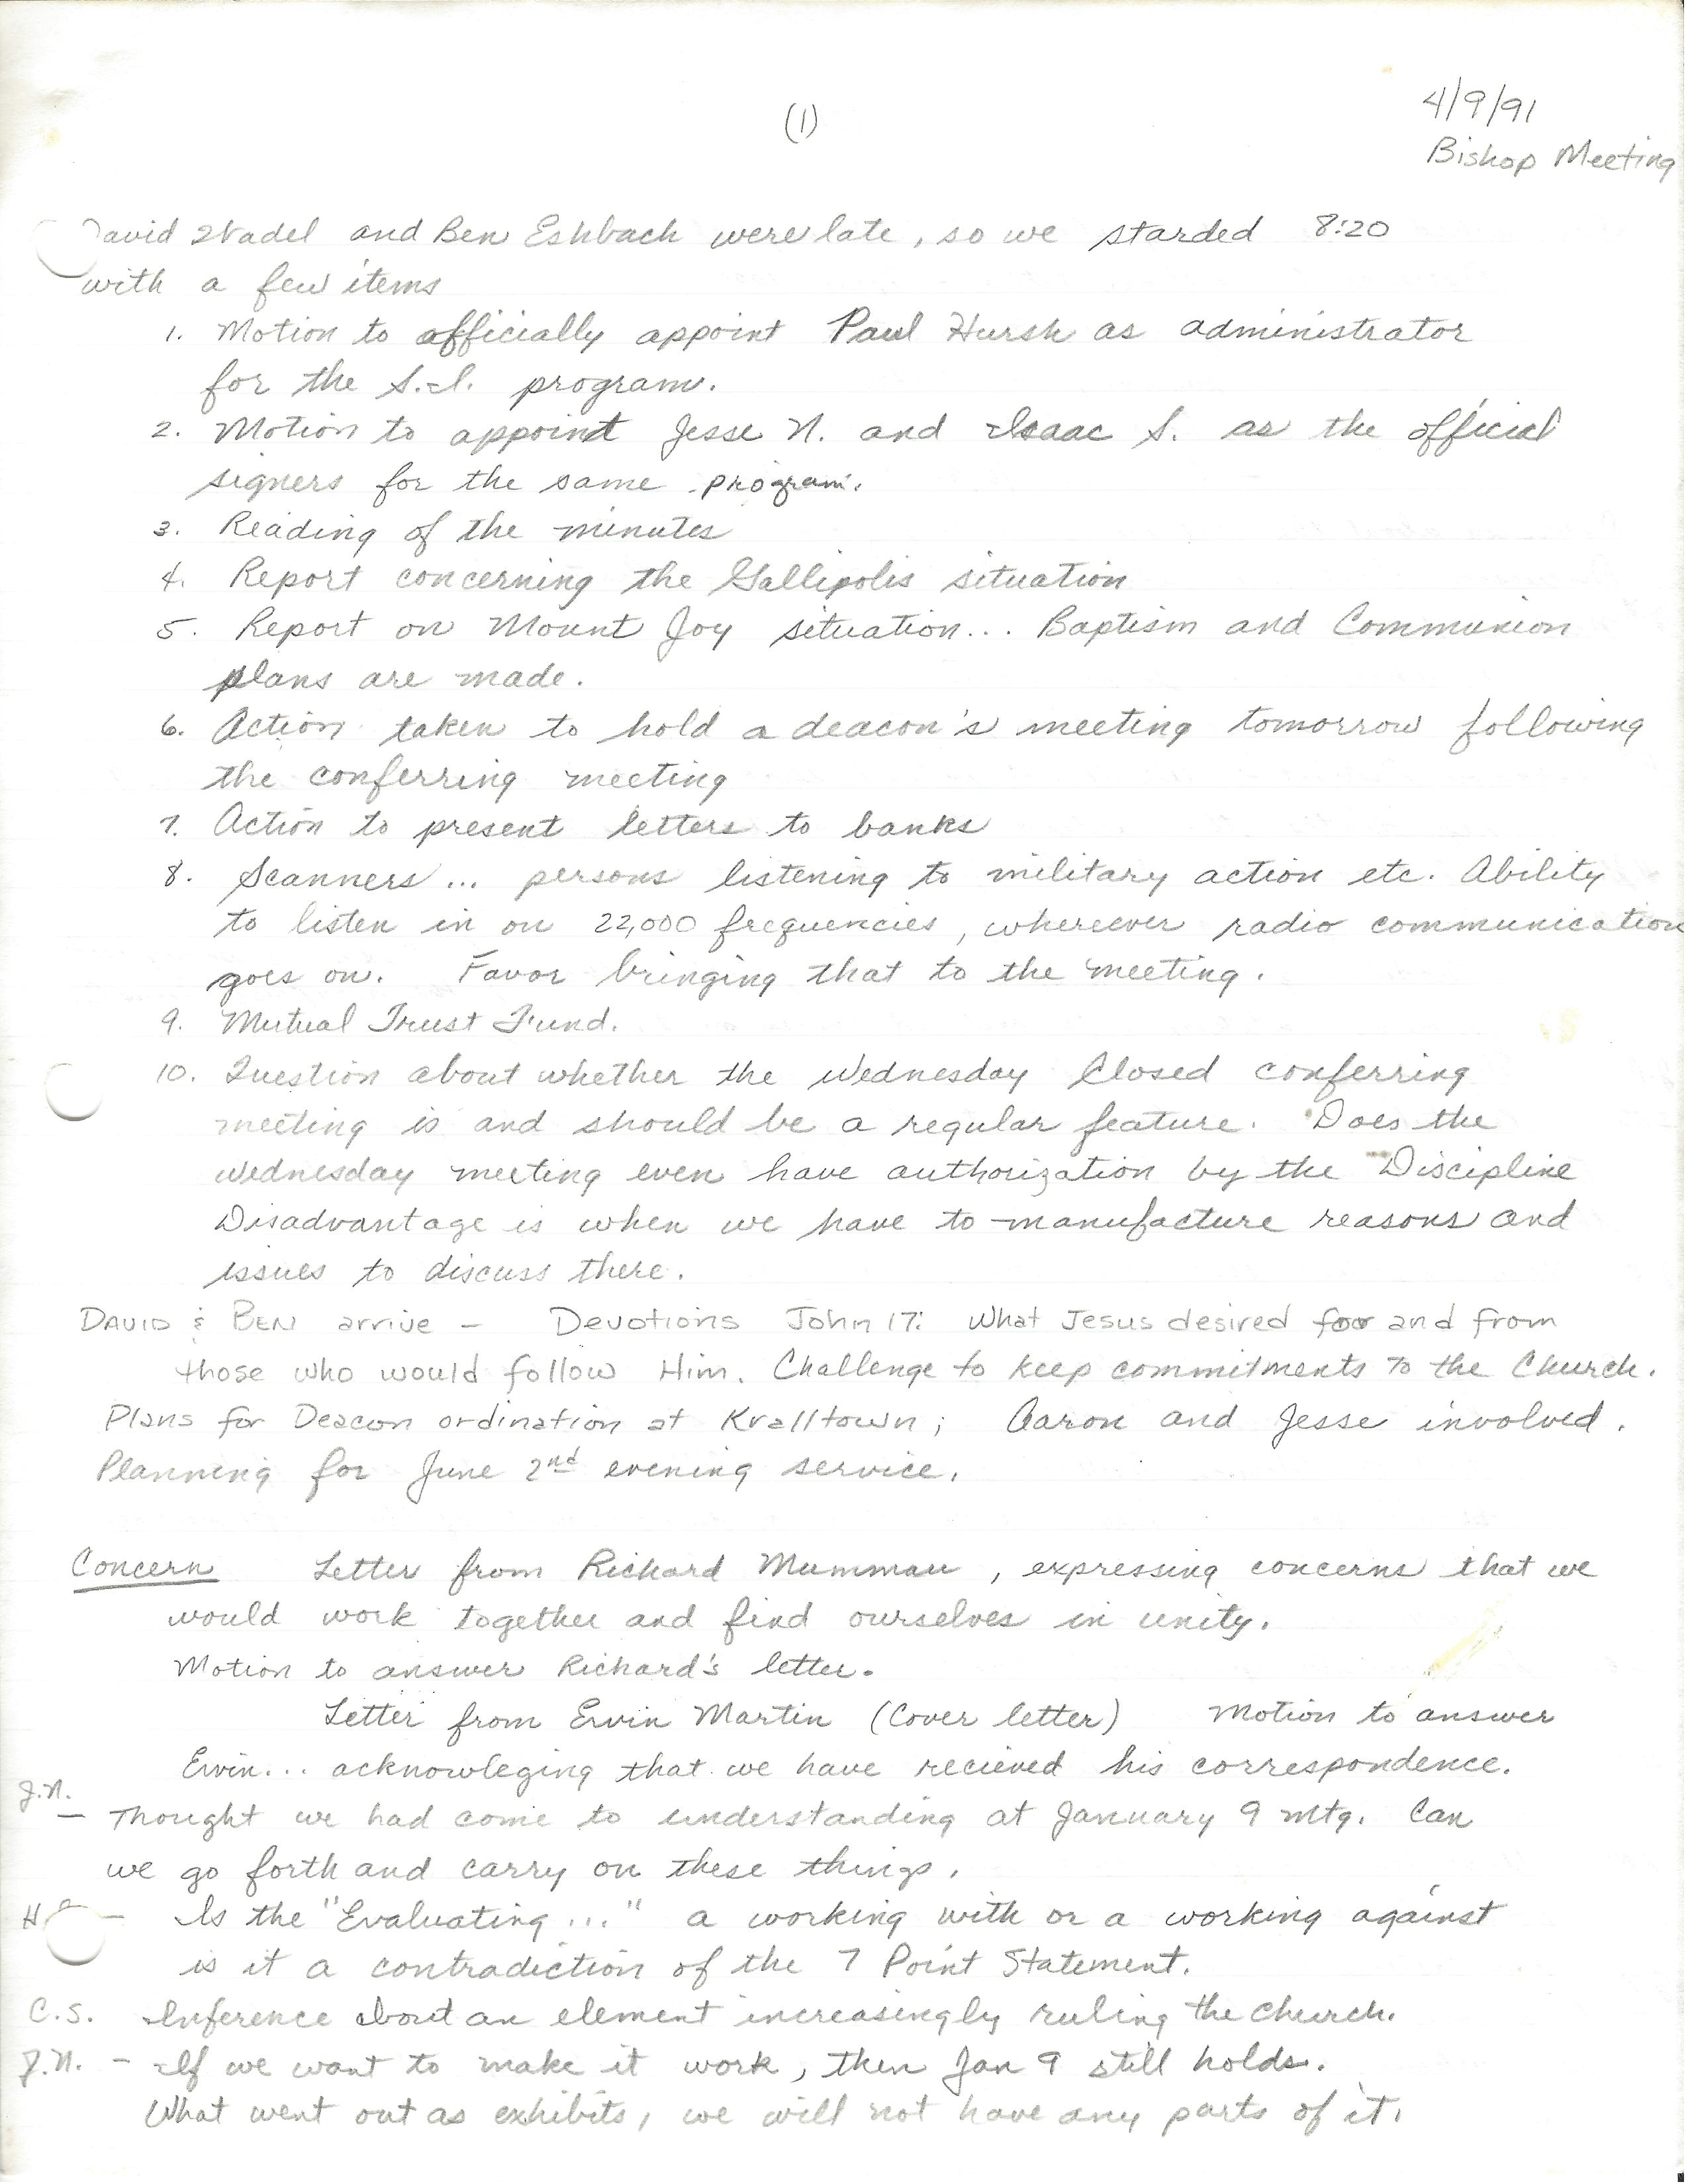 (1)
4/9/91
Bishop Meeting
David Wadel and Ben Eshbach were late, so we starded 8:20
with a few items
1. Motion to officially appoint Paul Hursh as administrator
for the S.I. program.
2. Motion to appoint Jesse N. and Isaac S. as the official
signers for the same program.
3. Reading of the minutes
4. Report concerning the Gallipolis situation
5. Report on Mount Joy situation... Baptism and Communion
plans are made.
6. Action taken to hold a deacon's meeting tomorrow following
the conferring meeting
7. Action to present letters to banks
8. Scanners... persons listening to military action etc. Ability
to listen in on 22,000 frequencies, whereever radio communication
goes on. Favor bringing that to the meeting.
9. Mutual Trust Fund.
10. Question about whether the Wednesday Closed conferring
meeting is and should be a regular feature. Does the
Wednesday meeting even have authorization by the Discipline
Disadvantage is when we have to manufacture reasons and
issues to discuss there.
David & Ben arrive - Devotions John 17: What Jesus desired for and from
those who would follow Him. Challenge to keep commitments to the Church.
Plans for Deacon ordination at Kralltown; Aaron and Jesse involved.
Planning for June 2nd evening service.
Concern Letter from Richard Mummau, expressing concerns that we
would work together and find ourselves in unity.
Motion to answer Richard's letter.
Letter from Ervin Martin (Cover letter) Motion to answer
Ervin... acknowleging that we have recieved his correspondence.
J.N.
- Thought we had come to understanding at January 9 mtg. Can
we go forth and carry on these things.
H - Is the "Evaluating..." a working with or a working against
is it a contradiction of the 7 Point Statement.
C.S. Inference about an element increasingly ruling the church.
J.N. - If we want to make it work, then Jan 9 still holds.
What went out as exhibits, we will not have any parts of it.